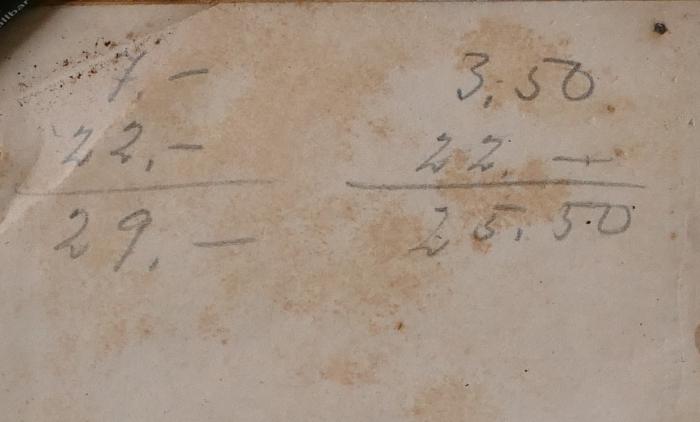 7,- 3,50
22,- 22,-
29,- 25,50